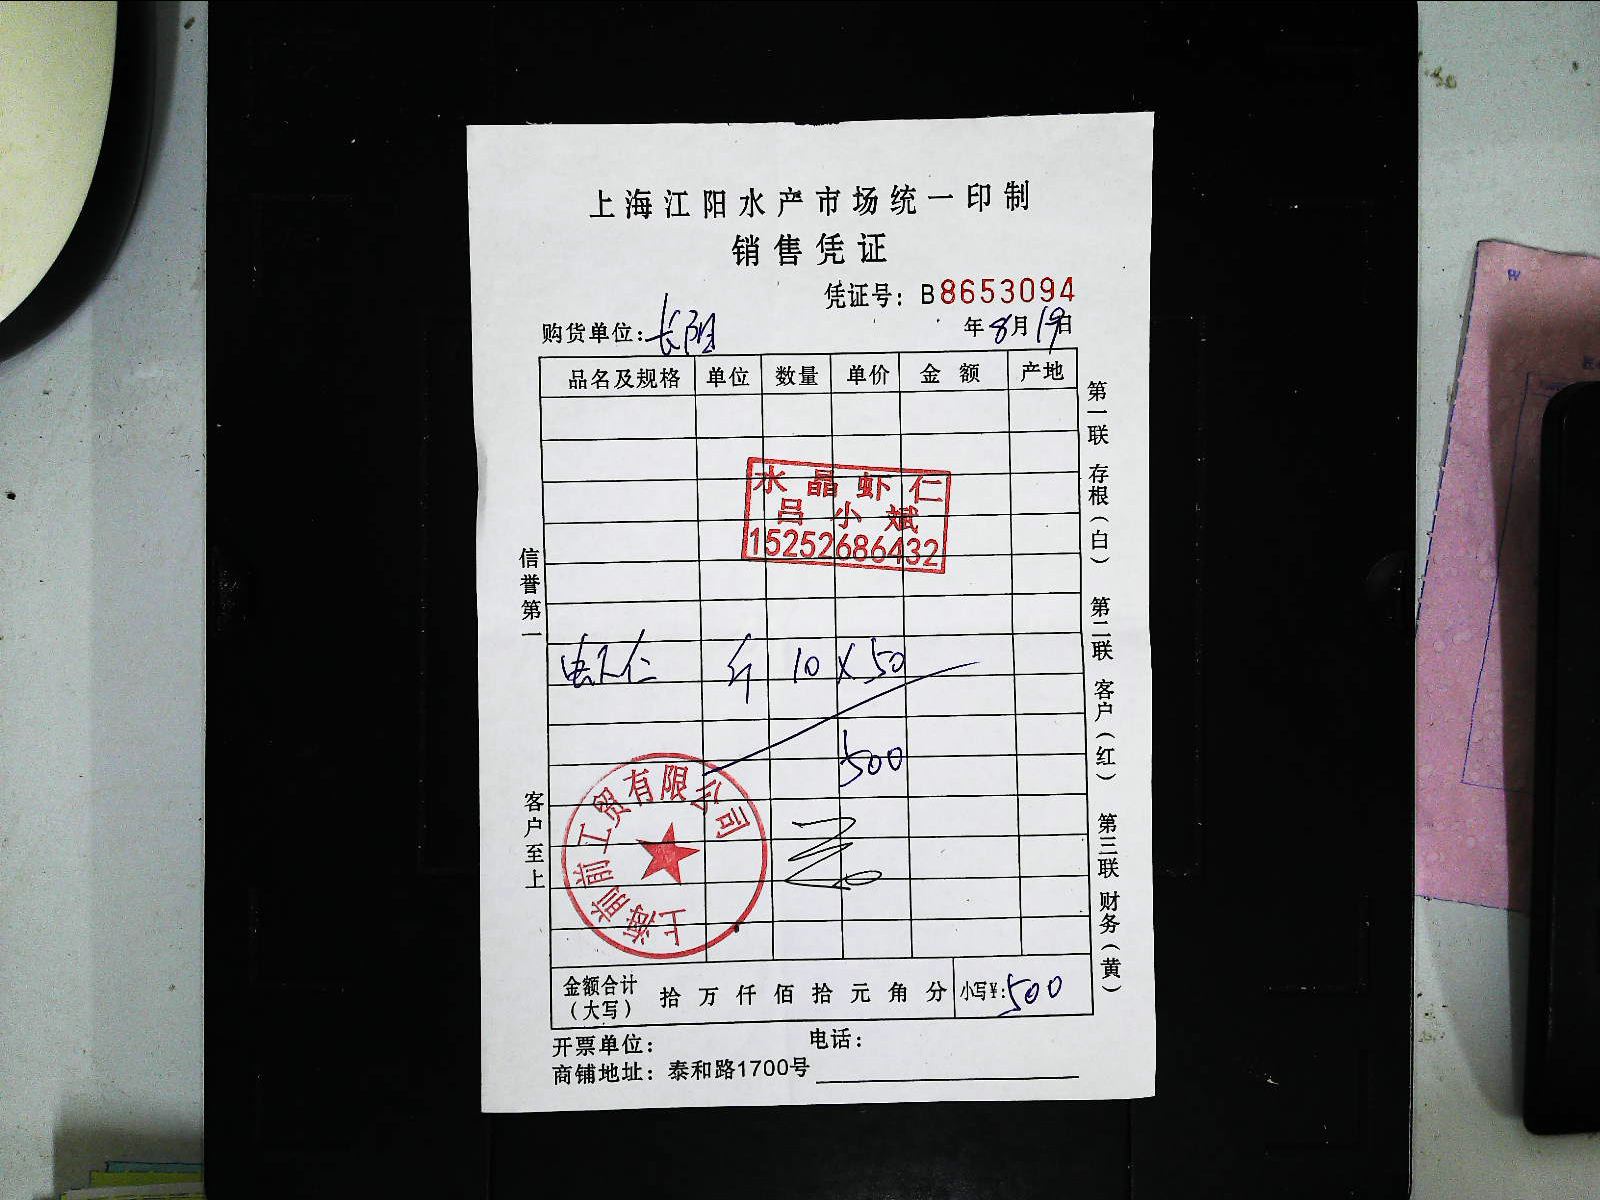 上海江阳水产市场统一印制
销售凭证
凭证号：B8653094
购货单位：长阳 年8月19日
品名及规格 单位 数量 单价 金额 产地
水晶虾仁
吕小斌
15252686432
虾仁 斤 10 X 50
500
上海前前工贸有限公司
金额合计（大写） 拾万仟佰拾元角分 小写¥：500
开票单位： 电话：
商铺地址：泰和路1700号
信誉第一 客户至上
第一联 存根（白） 第二联 客户（红） 第三联 财务（黄）